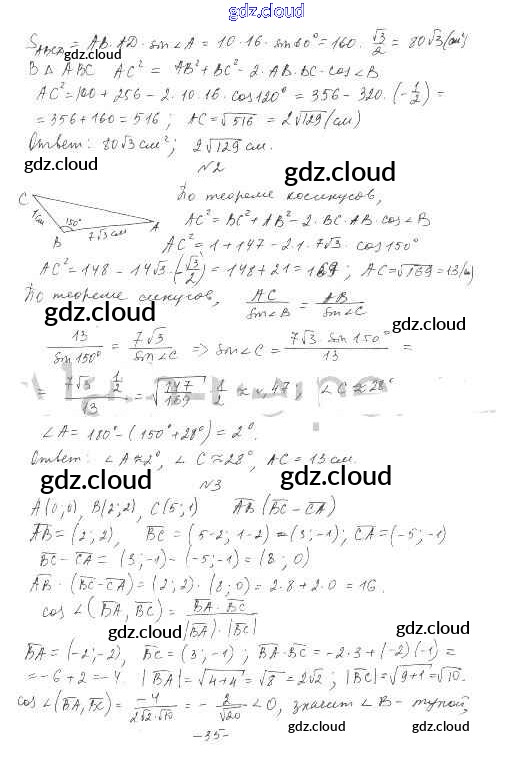 gdz.cloud
S_ABCD = AB·AD·sin∠A = 10·16·sin60° = 160·√3/2 = 80√3 (см²)
В △ ABC AC² = AB² + BC² - 2·AB·BC·cos∠B
AC² = 100 + 256 - 2·10·16·cos120° = 356 - 320·(-1/2) =
= 356 + 160 = 516; AC = √516 = 2√129 (см)
Ответ: 80√3 см²; 2√129 см.
gdz.cloud gdz.cloud
№2
gdz.cloud gdz.cloud
C 1 см 150° B 7√3 см A
По теореме косинусов,
AC² = BC² + AB² - 2·BC·AB·cos∠B
gdz.cloud
AC² = 1 + 147 - 2·1·7√3·cos150°
AC² = 148 - 14√3·(-√3/2) = 148 + 21 = 169; AC = √169 = 13 (см)
По теореме синусов, AC/sin∠B = AB/sin∠C
gdz.cloud gdz.cloud
13/sin150° = 7√3/sin∠C => sin∠C = 7√3·sin150°/13 =
= 7√3·1/2/13 = √147/169·1/2 ≈ 0,47, ∠C ≈ 28°
∠A = 180° - (150° + 28°) = 2°.
Ответ: ∠A ≈ 2°, ∠C ≈ 28°, AC = 13 см.
gdz.cloud gdz.cloud
№3
A(0;0), B(2;2), C(5;1) AB(BC - CA)
gdz.cloud
AB = (2;2), BC = (5-2;1-2) = (3;-1); CA = (-5;-1)
BC - CA = (3;-1) - (-5;-1) = (8;0)
gdz.cloud
AB·(BC - CA) = (2;2)·(8;0) = 2·8 + 2·0 = 16.
gdz.cloud
cos∠(BA, BC) = BA·BC/|BA|·|BC|
gdz.cloud gdz.cloud
BA = (-2;-2), BC = (3;-1); BA·BC = -2·3 + (-2)(-1) =
= -6 + 2 = -4. |BA| = √4+4 = √8 = 2√2; |BC| = √9+1 = √10.
cos∠(BA, BC) = -4/2√2·√10 = -2/√20 < 0, значит ∠B - тупой,
gdz.cloud gdz.cloud gdz.cloud
-35-